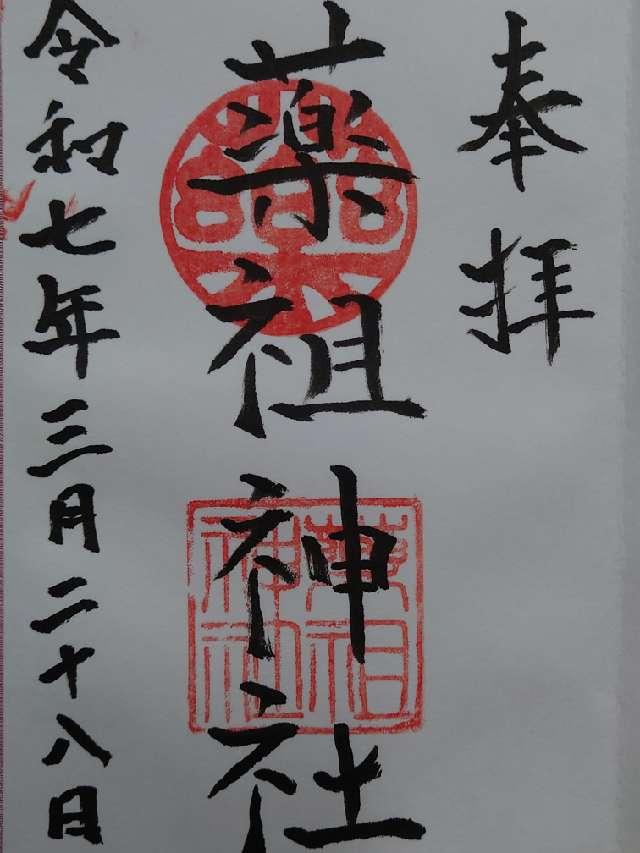 奉拝
薬祖神社
薬祖神社
令和七年三月二十八日